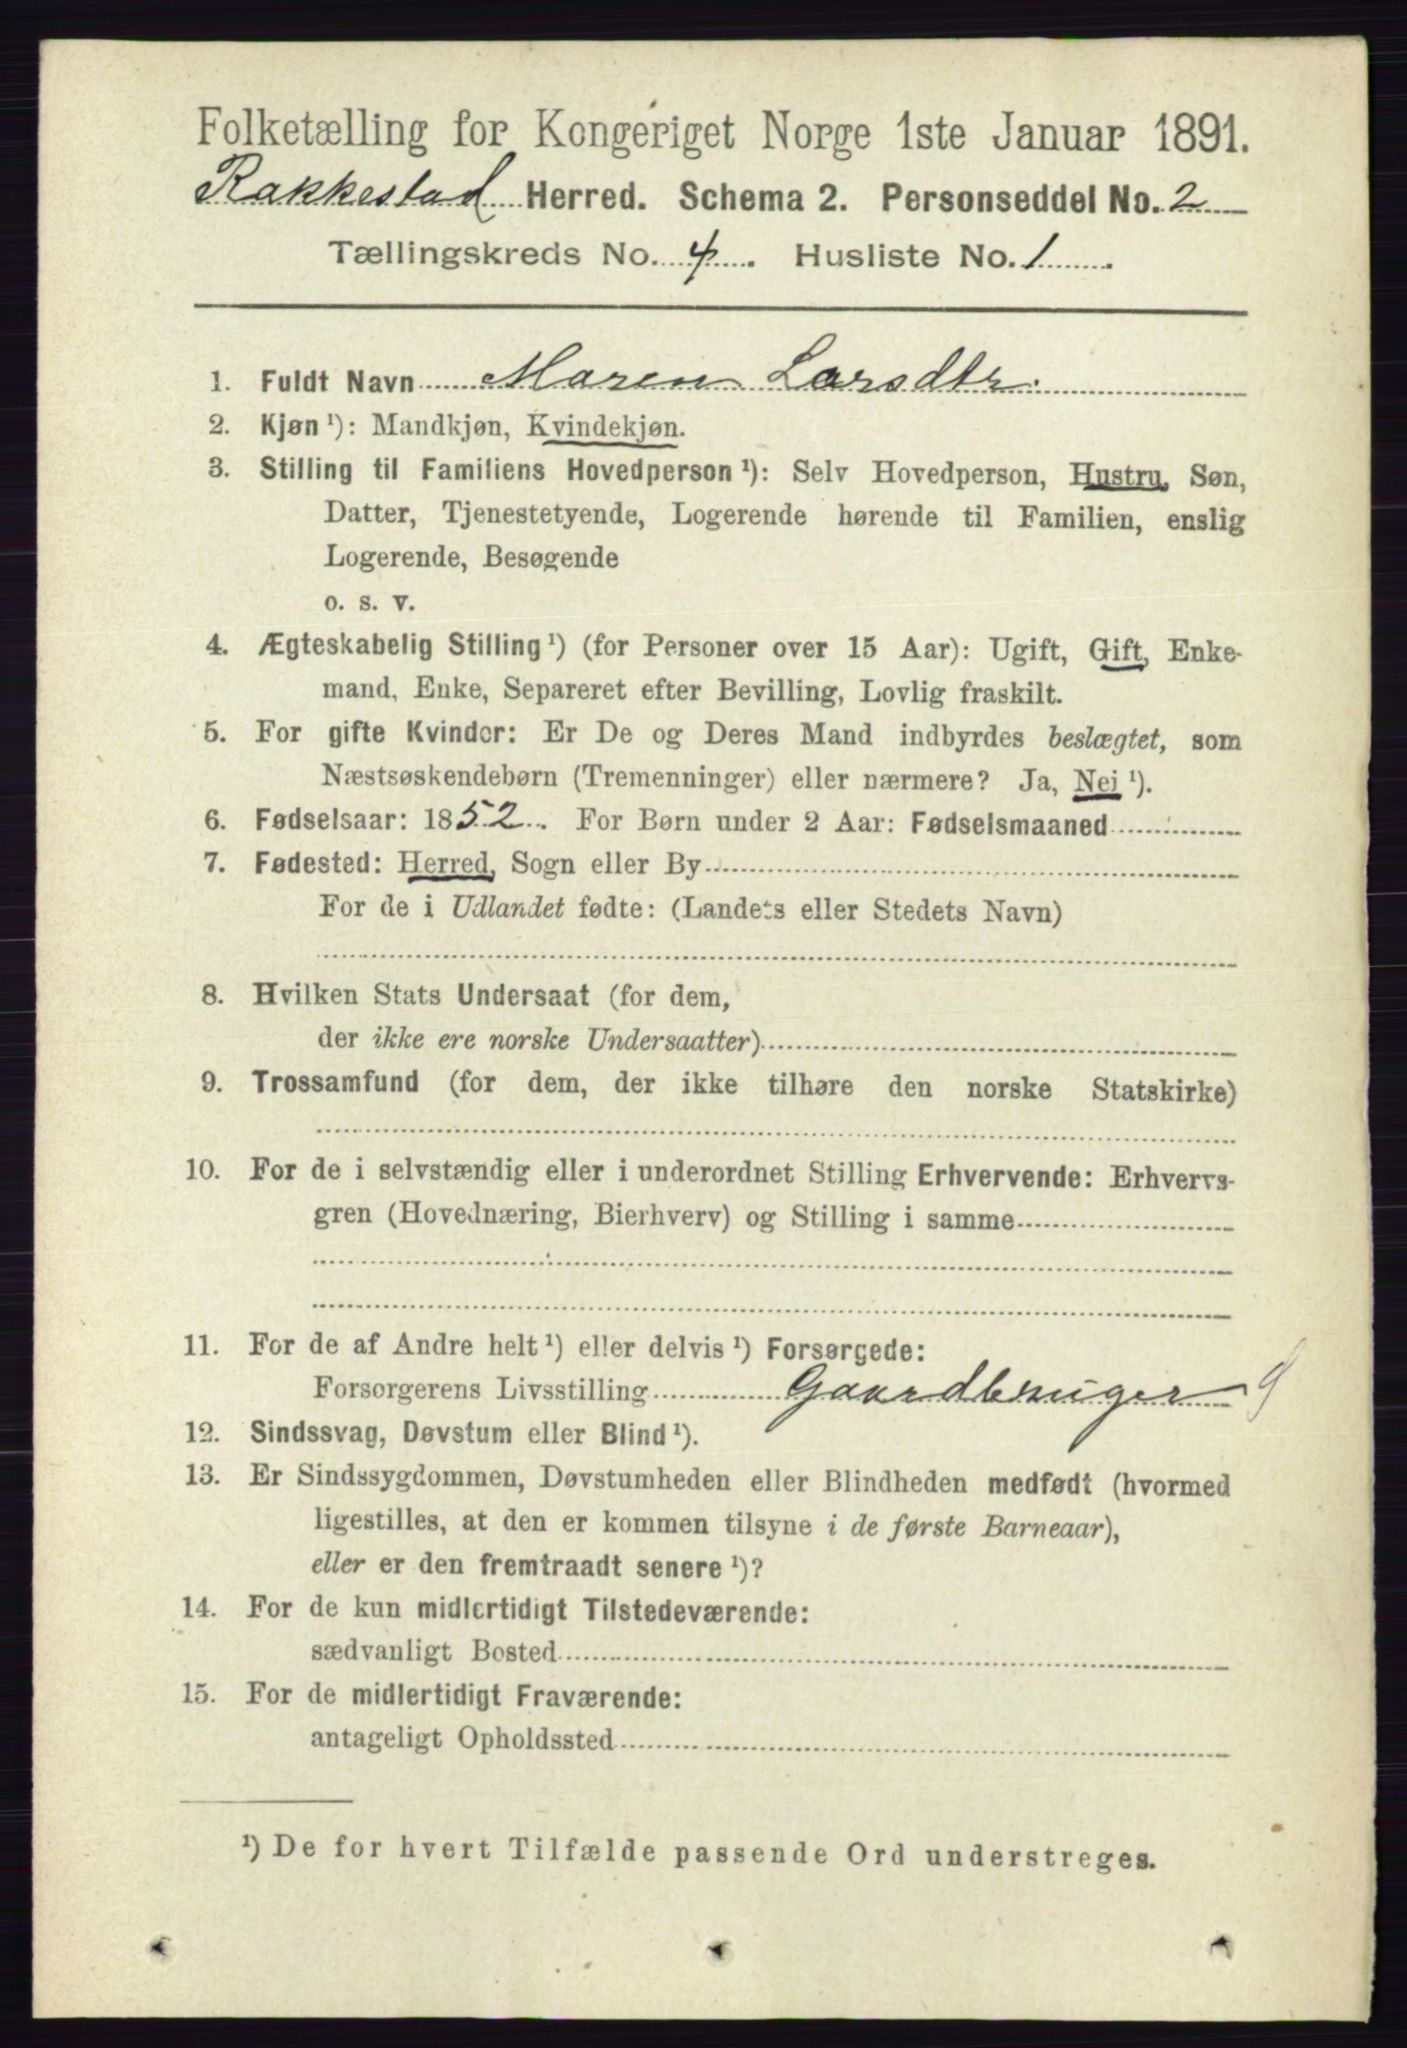 Folketælling for Kongeriget Norge 1ste Januar 1891.
Rakkestad Herred. Schema 2. Personseddel No. 2
Tællingskreds No. 4. Husliste No. 1.
1. Fuldt Navn Maren Larsdtr.
2. Kjøn ¹): Mandkjøn, Kvindekjøn.
3. Stilling til Familiens Hovedperson ¹): Selv Hovedperson, Hustru, Søn,
Datter, Tjenestetyende, Logerende hørende til Familien, enslig
Logerende, Besøgende
o. s. v.
4. Ægteskabelig Stilling ¹) (for Personer over 15 Aar): Ugift, Gift, Enke-
mand, Enke, Separeret efter Bevilling, Lovlig fraskilt.
5. For gifte Kvinder: Er De og Deres Mand indbyrdes beslægtet, som
Næstsøskendebørn (Tremenninger) eller nærmere? Ja, Nei ¹).
6. Fødselsaar: 1852. For Børn under 2 Aar: Fødselsmaaned
7. Fødested: Herred, Sogn eller By
For de i Udlandet fødte: (Landets eller Stedets Navn)
8. Hvilken Stats Undersaat (for dem,
der ikke ere norske Undersaatter)
9. Trossamfund (for dem, der ikke tilhøre den norske Statskirke)
10. For de i selvstændig eller i underordnet Stilling Erhvervende: Erhvervs-
gren (Hovednæring, Bierhverv) og Stilling i samme
11. For de af Andre helt ¹) eller delvis ¹) Forsørgede:
Forsorgerens Livsstilling Gaardbruger 9
12. Sindssvag, Døvstum eller Blind ¹).
13. Er Sindssygdommen, Døvstumheden eller Blindheden medfødt (hvormed
ligestilles, at den er kommen tilsyne i de første Barneaar),
eller er den fremtraadt senere ¹)?
14. For de kun midlertidigt Tilstedeværende:
sædvanligt Bosted
15. For de midlertidigt Fraværende:
antageligt Opholdssted
¹) De for hvert Tilfælde passende Ord understreges.